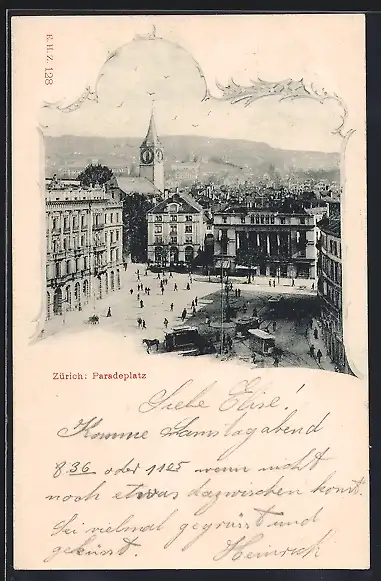 E. H. Z. 128
Zürich: Paradeplatz
Liebe Elise!
Komme Samslagabend
8 36 oder 11 25 wenn nicht
noch etwas dazwischen komt.
Sei vielmal gegrüsst und
geküsst. Heinrich